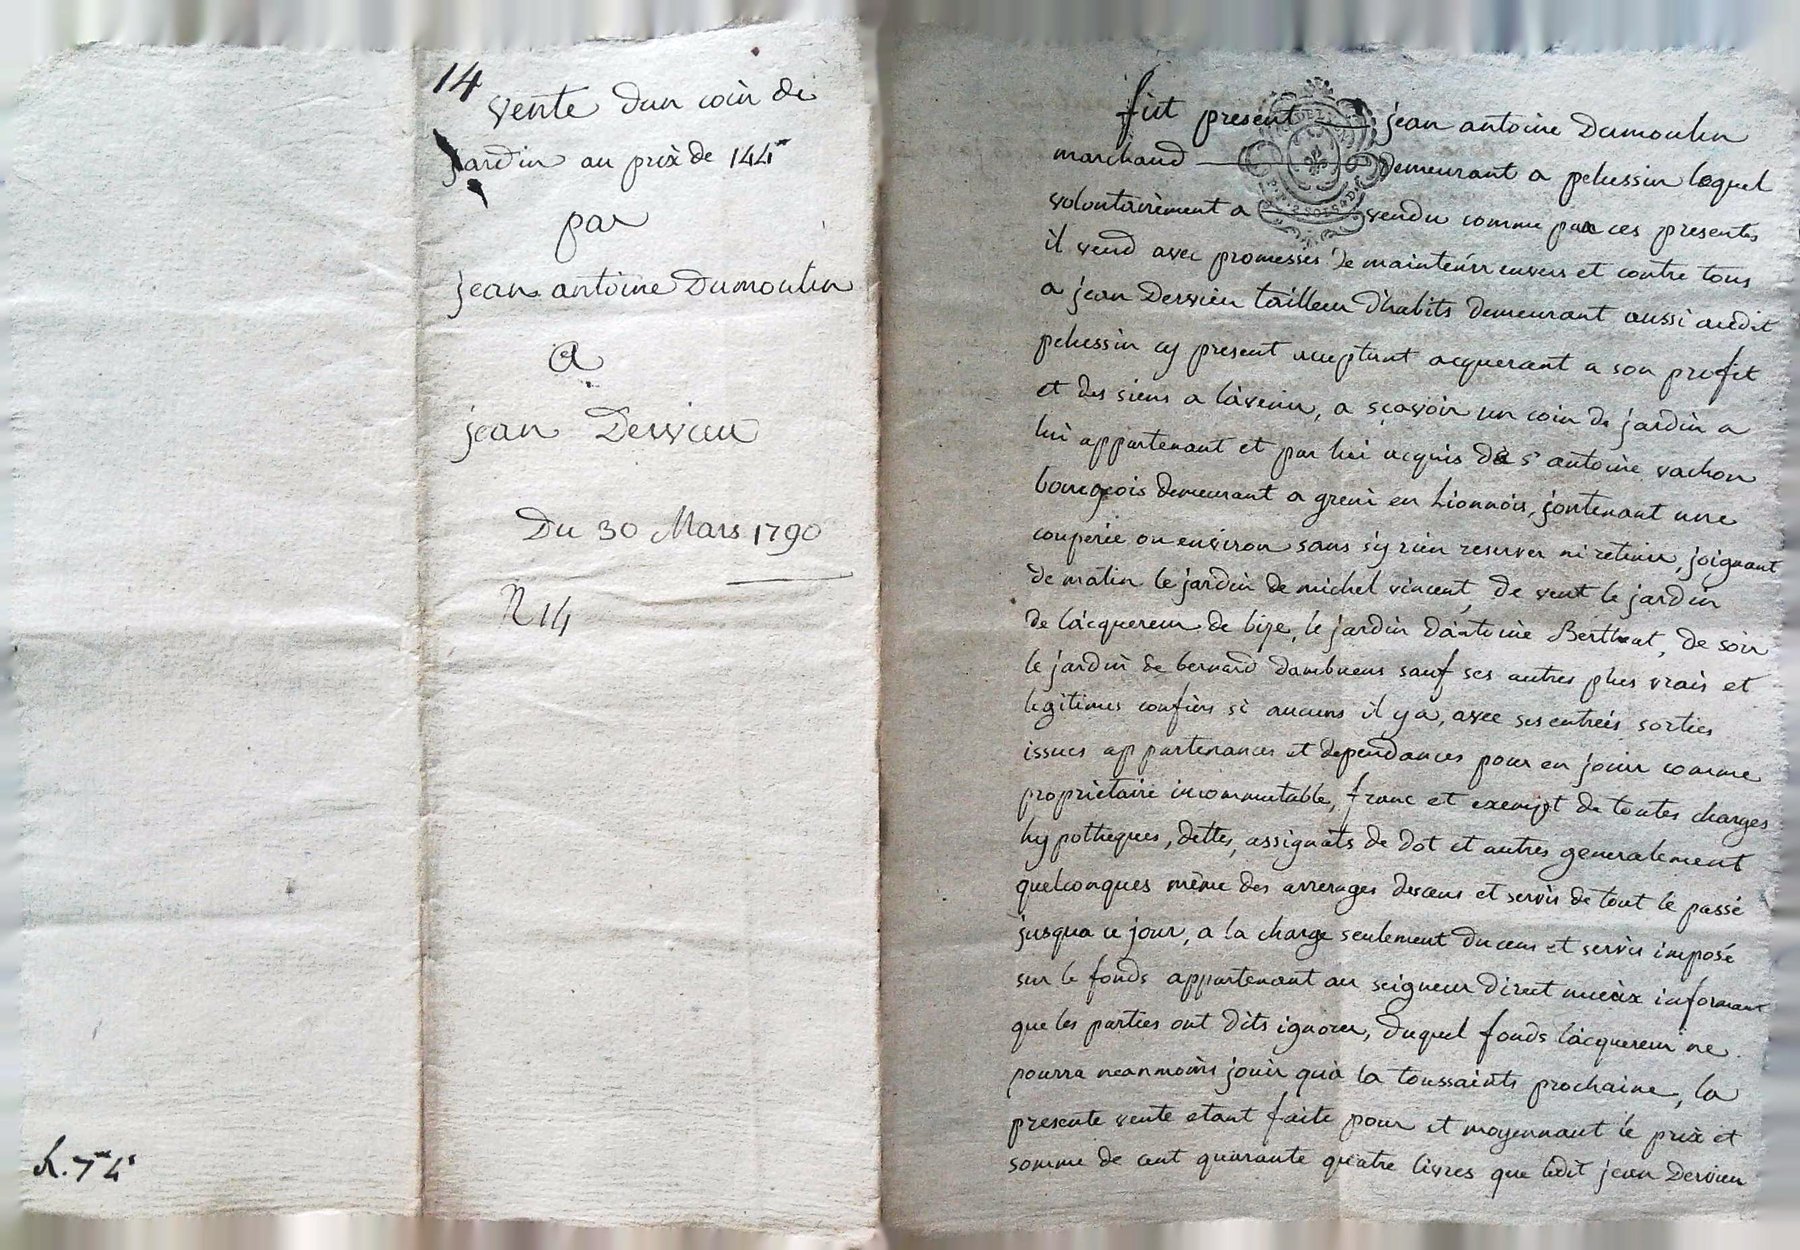 14
vente dun coin de
jardin au prix de 144#
par
jean antoine Dumoulin
a
jean Dervieu
Du 30 Mars 1790
N 14
R. 7# 4s
fut present jean antoine Dumoulin
marchand demeurant a pelussin lequel
volontairement a vendu comme par ces presentes
il vend avec promesses de maintenir envers et contre tous
a jean Dervieu tailleur d'habits demeurant aussi audit
pelussin cy present acceptant acquerant a son profit
et des siens a l'avenir, a sçavoir un coin de jardin a
lui appartenant et par lui acquis de sr antoine vachon
bourgeois demeurant a greni en Lionnois, contenant une
couperie ou environ sans s'y rien reserver ni retenir, joignant
de matin le jardin de michel vincent, de vent le jardin
de l'acquereur de bize, le jardin d'antoine Bertheat, de soir
le jardin de bernard dambuens sauf ses autres plus vrais et
legitimes confins si aucuns il y a, avec ses entrées sorties
issues appartenances et dependances pour en jouir comme
proprietaire incommutable, franc et exempt de toutes charges
hypotheques, dettes, assignats de dot et autres generalement
quelconques même des arrerages desceus et servis de tout le passé
jusqua ce jour, a la charge seulement du cens et servis imposé
sur le fonds appartenant au seigneur direct mieux informant
que les parties ont dits ignorer, duquel fonds l'acquereur ne
pourra neanmoins jouir qu'a la toussaints prochaine, la
presente vente etant faite pour et moyennant le prix et
somme de cent quarante quatre livres que ledit jean Dervieu